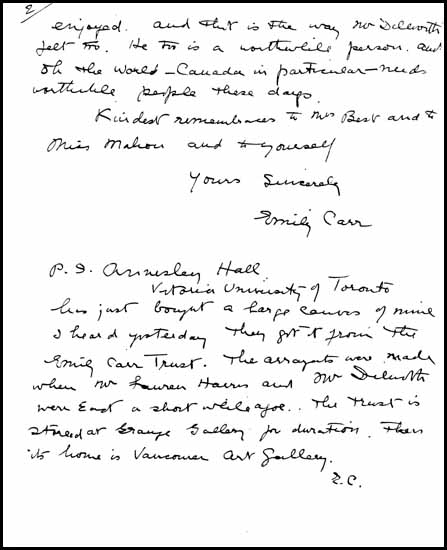 2
enjoyed. and that is the way Mr Delworth
felt too. He too is a worthwhile person. and
Oh the world – Canada in particular – needs
worthwhile people these days.
Kindest remembrances to Mrs Best and to
Miss Mahon and to yourself
Yours Sincerely
Emily Carr
P.S. Annesley Hall
Victoria University of Toronto
has just bought a large canvas of mine
I heard yesterday they got it from the
Emily Carr Trust. The arragets were made
when Mr Lauren Harris and Mr Delworth
were East a short while agoe.. The Trust is
stored at Grange Gallery for duration. Then
its home is Vancouver Art Gallery.
E.C.